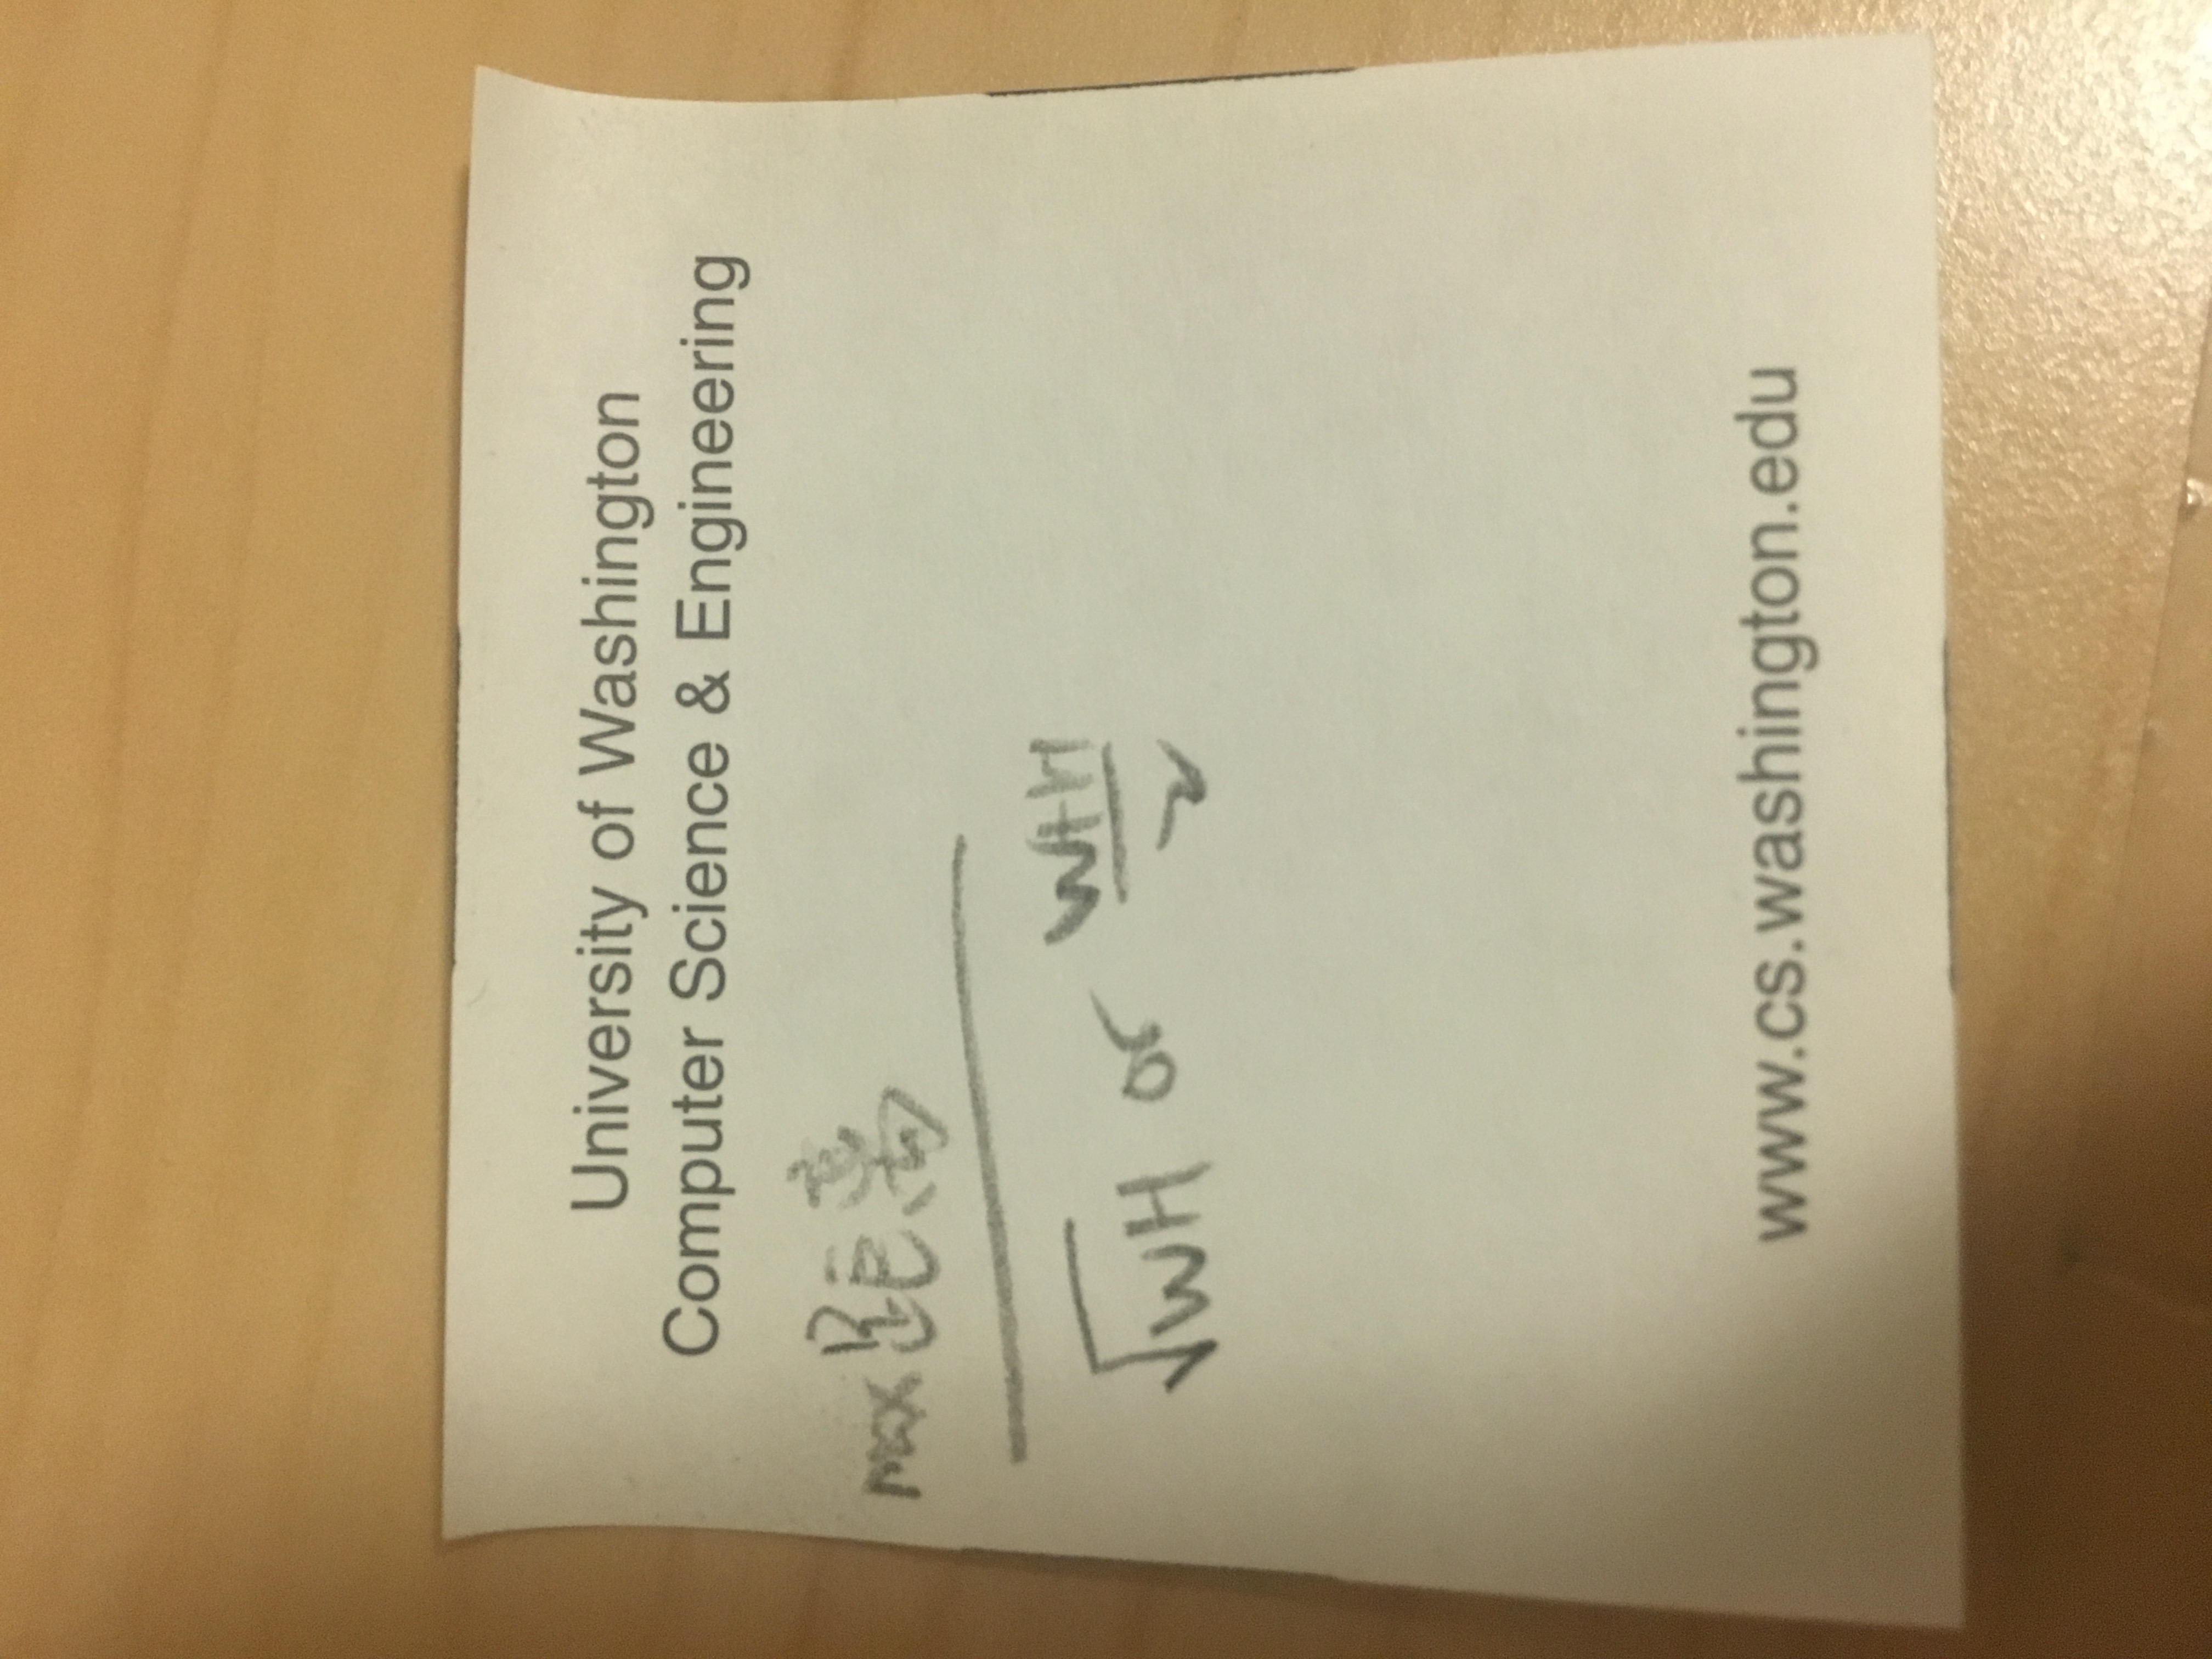 University of Washington
Computer Science & Engineering
max距离
√WH or (W+H)/2
www.cs.washington.edu